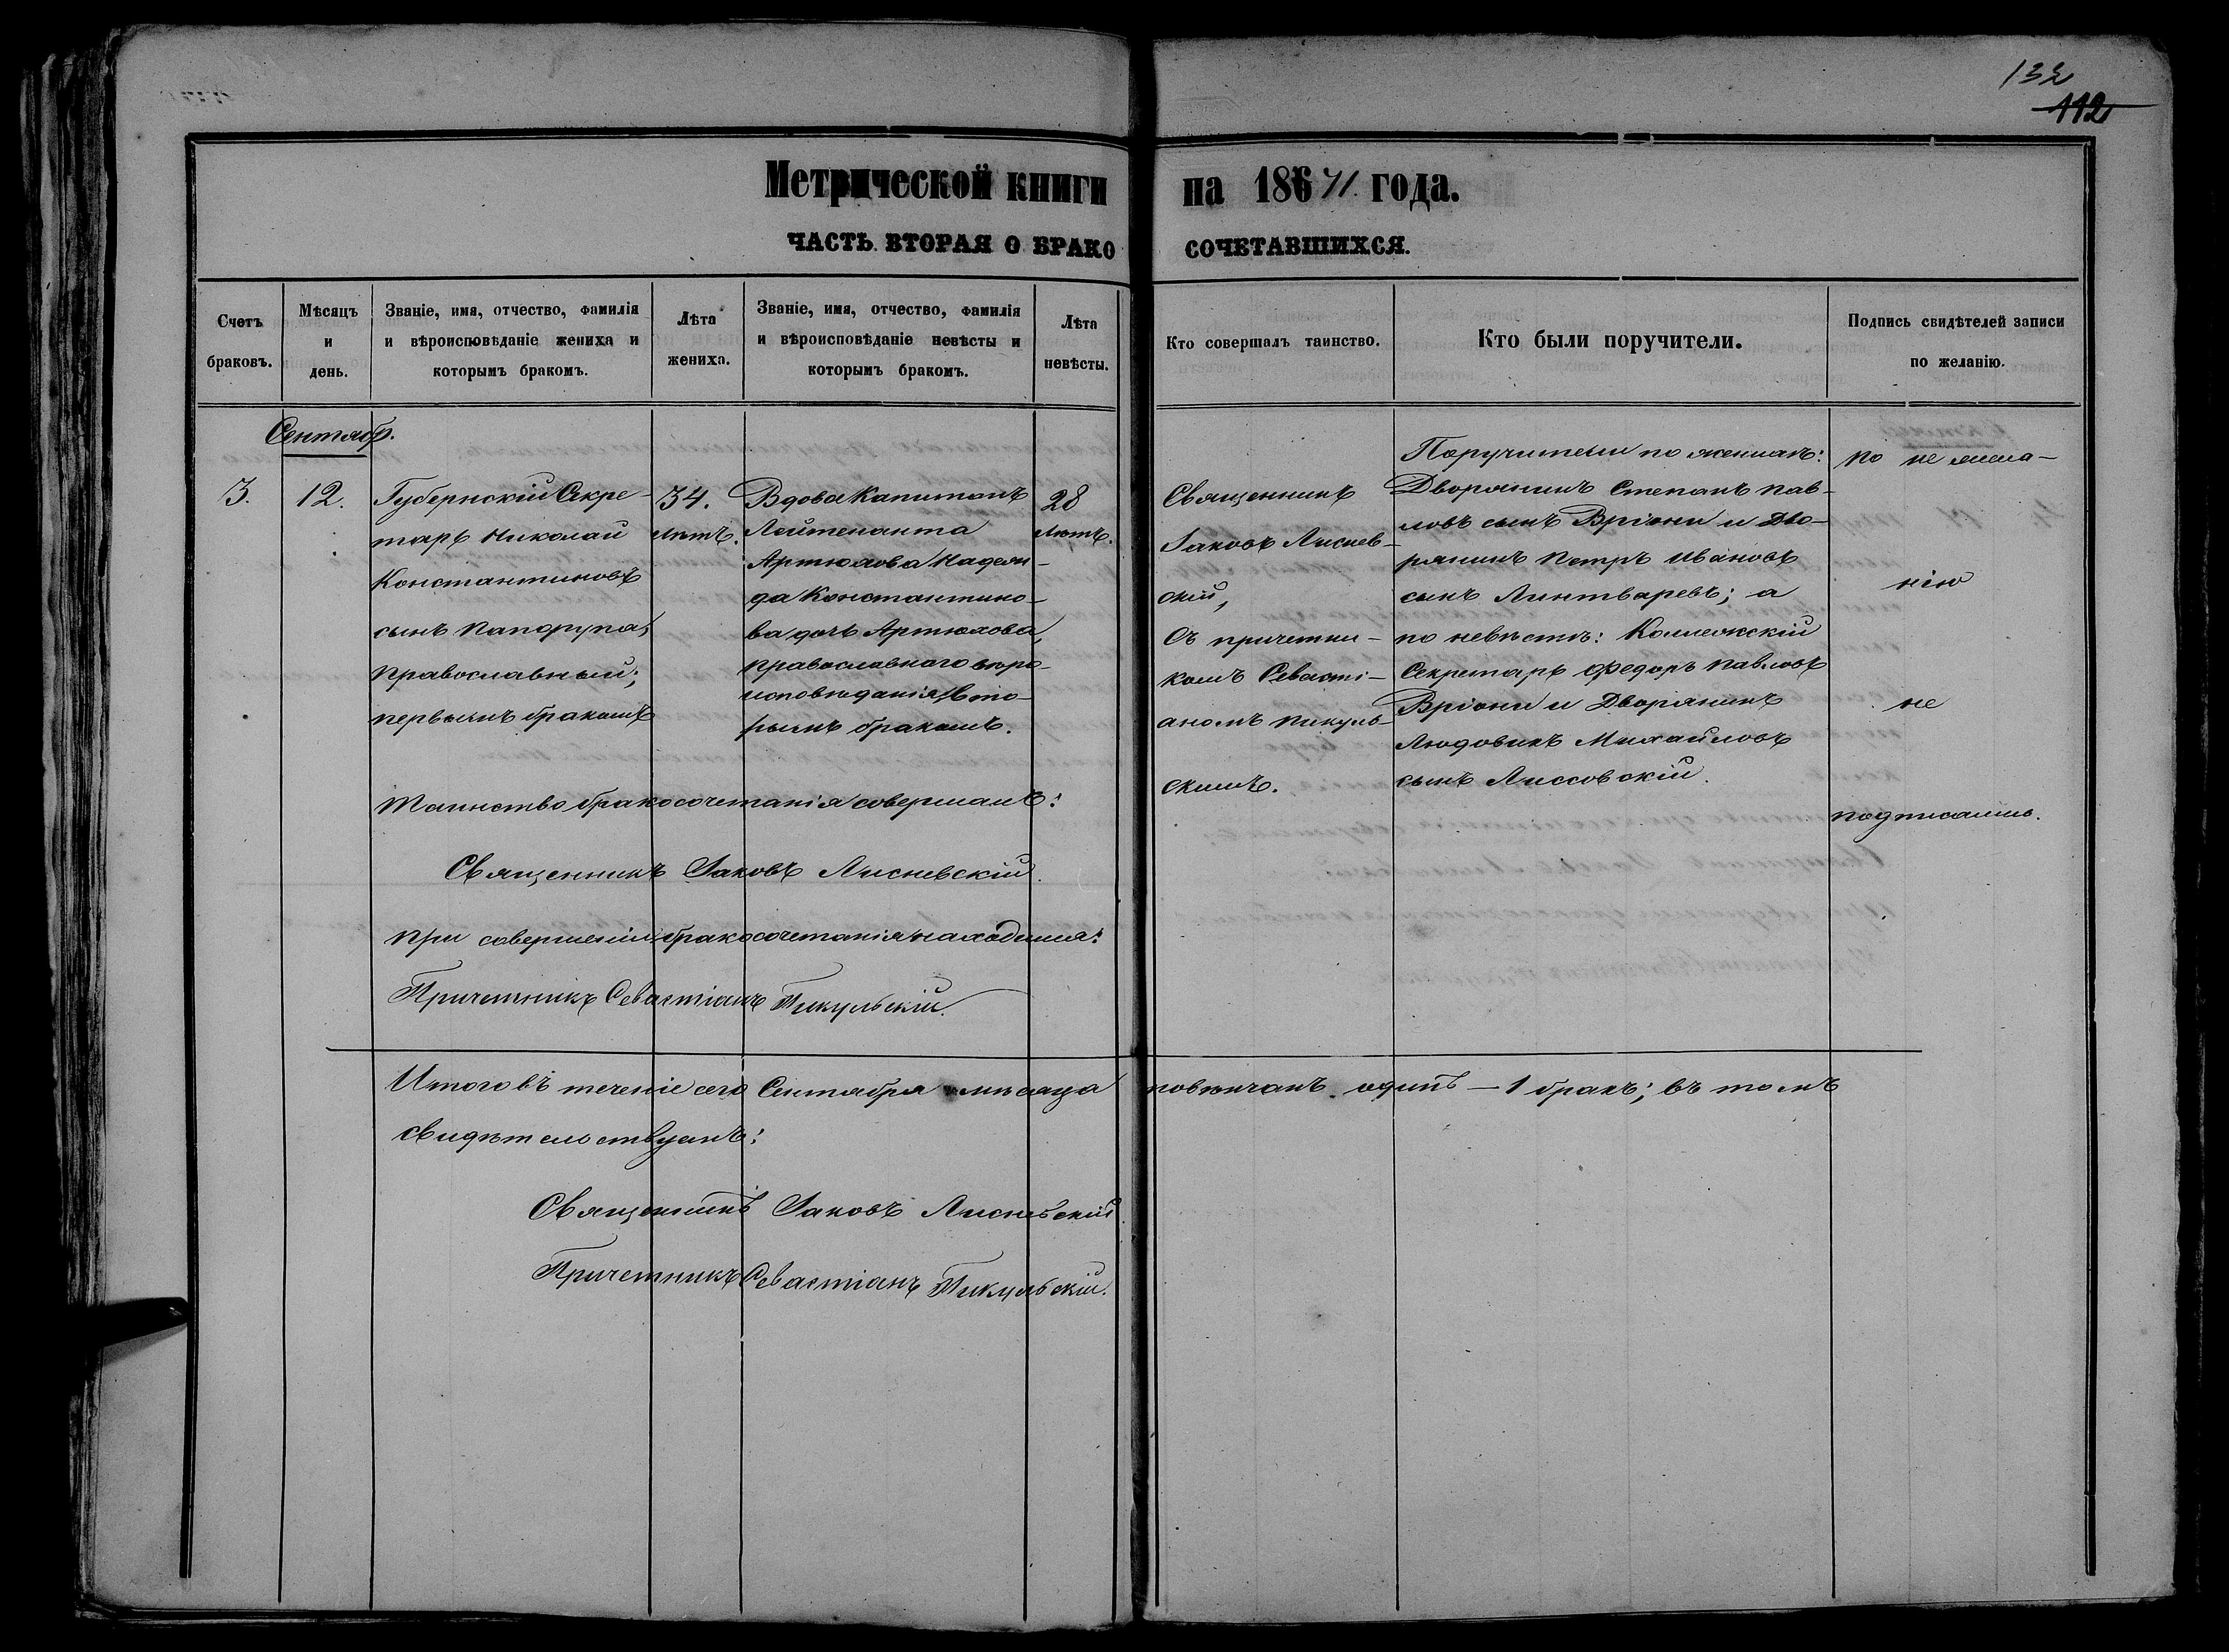 132
112
Метрической книги на 1871 года.
ЧАСТЬ ВТОРАЯ О БРАКОСОЧЕТАВШИХСЯ.
Счетъ браковъ.
Мѣсяцъ и день.
Званіе, имя, отчество, фамилія и вѣроисповѣданіе жениха и которымъ бракомъ.
Лѣта жениха.
Званіе, имя, отчество, фамилія и вѣроисповѣданіе невѣсты и которымъ бракомъ.
Лѣта невѣсты.
Кто совершалъ таинство.
Кто были поручители.
Подпись свидѣтелей записи по желанію.
Сентябр.
3.
12.
Губернскій Секре-
тарь Николай
Константиновъ
сынъ Папорупа,
православный;
первымъ бракомъ
34.
лѣтъ.
Вдова Капитанъ
Лейтенанта
Артюхова Надеж-
да Константино-
ва дочь Артюхова,
православнаго вѣро-
исповѣданія, вто-
рымъ бракомъ.
28
лѣтъ.
Священникъ
Іаковъ Лиснев-
скій,
Съ причетни-
комъ Севасті-
аномъ Пикуль-
скимъ.
Поручители по женихѣ:
Дворянинъ Степанъ Пав-
ловъ сынъ Вріони и Дво-
рянинъ Петръ Ивановъ
сынъ Линтваревъ; а
по невѣстѣ: Коллежскій
Секретарь Федоръ Павловъ
Вріони и Дворянинъ
Людовикъ Михайловъ
сынъ Лиссовскій.
по не жела-
нію
не
подписались.
Таинство бракосочетанія совершалъ:
Священникъ Іаковъ Лисневскій.
При совершеніи бракосочетанія находился:
Причетникъ Севастіанъ Пикульскій.
Итого въ теченіе сего Сентября мѣсяца повѣнчанъ одинъ — 1 бракъ; въ томъ
свидѣтельствуемъ:
Священникъ Іаковъ Лисневскій
Причетникъ Севастіанъ Пикульскій.